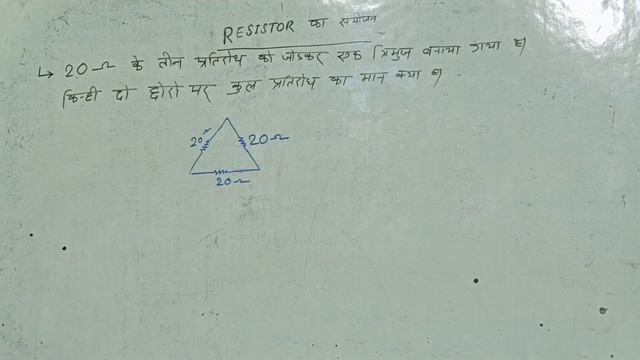 RESISTOR का संयोजन
↳ 20 Ω के तीन प्रतिरोध को जोडकर एक त्रिभुज बनाया गया है।
किन्ही दो छोरो पर कुल प्रतिरोध का मान क्या है।
20 Ω
20 Ω
20 Ω